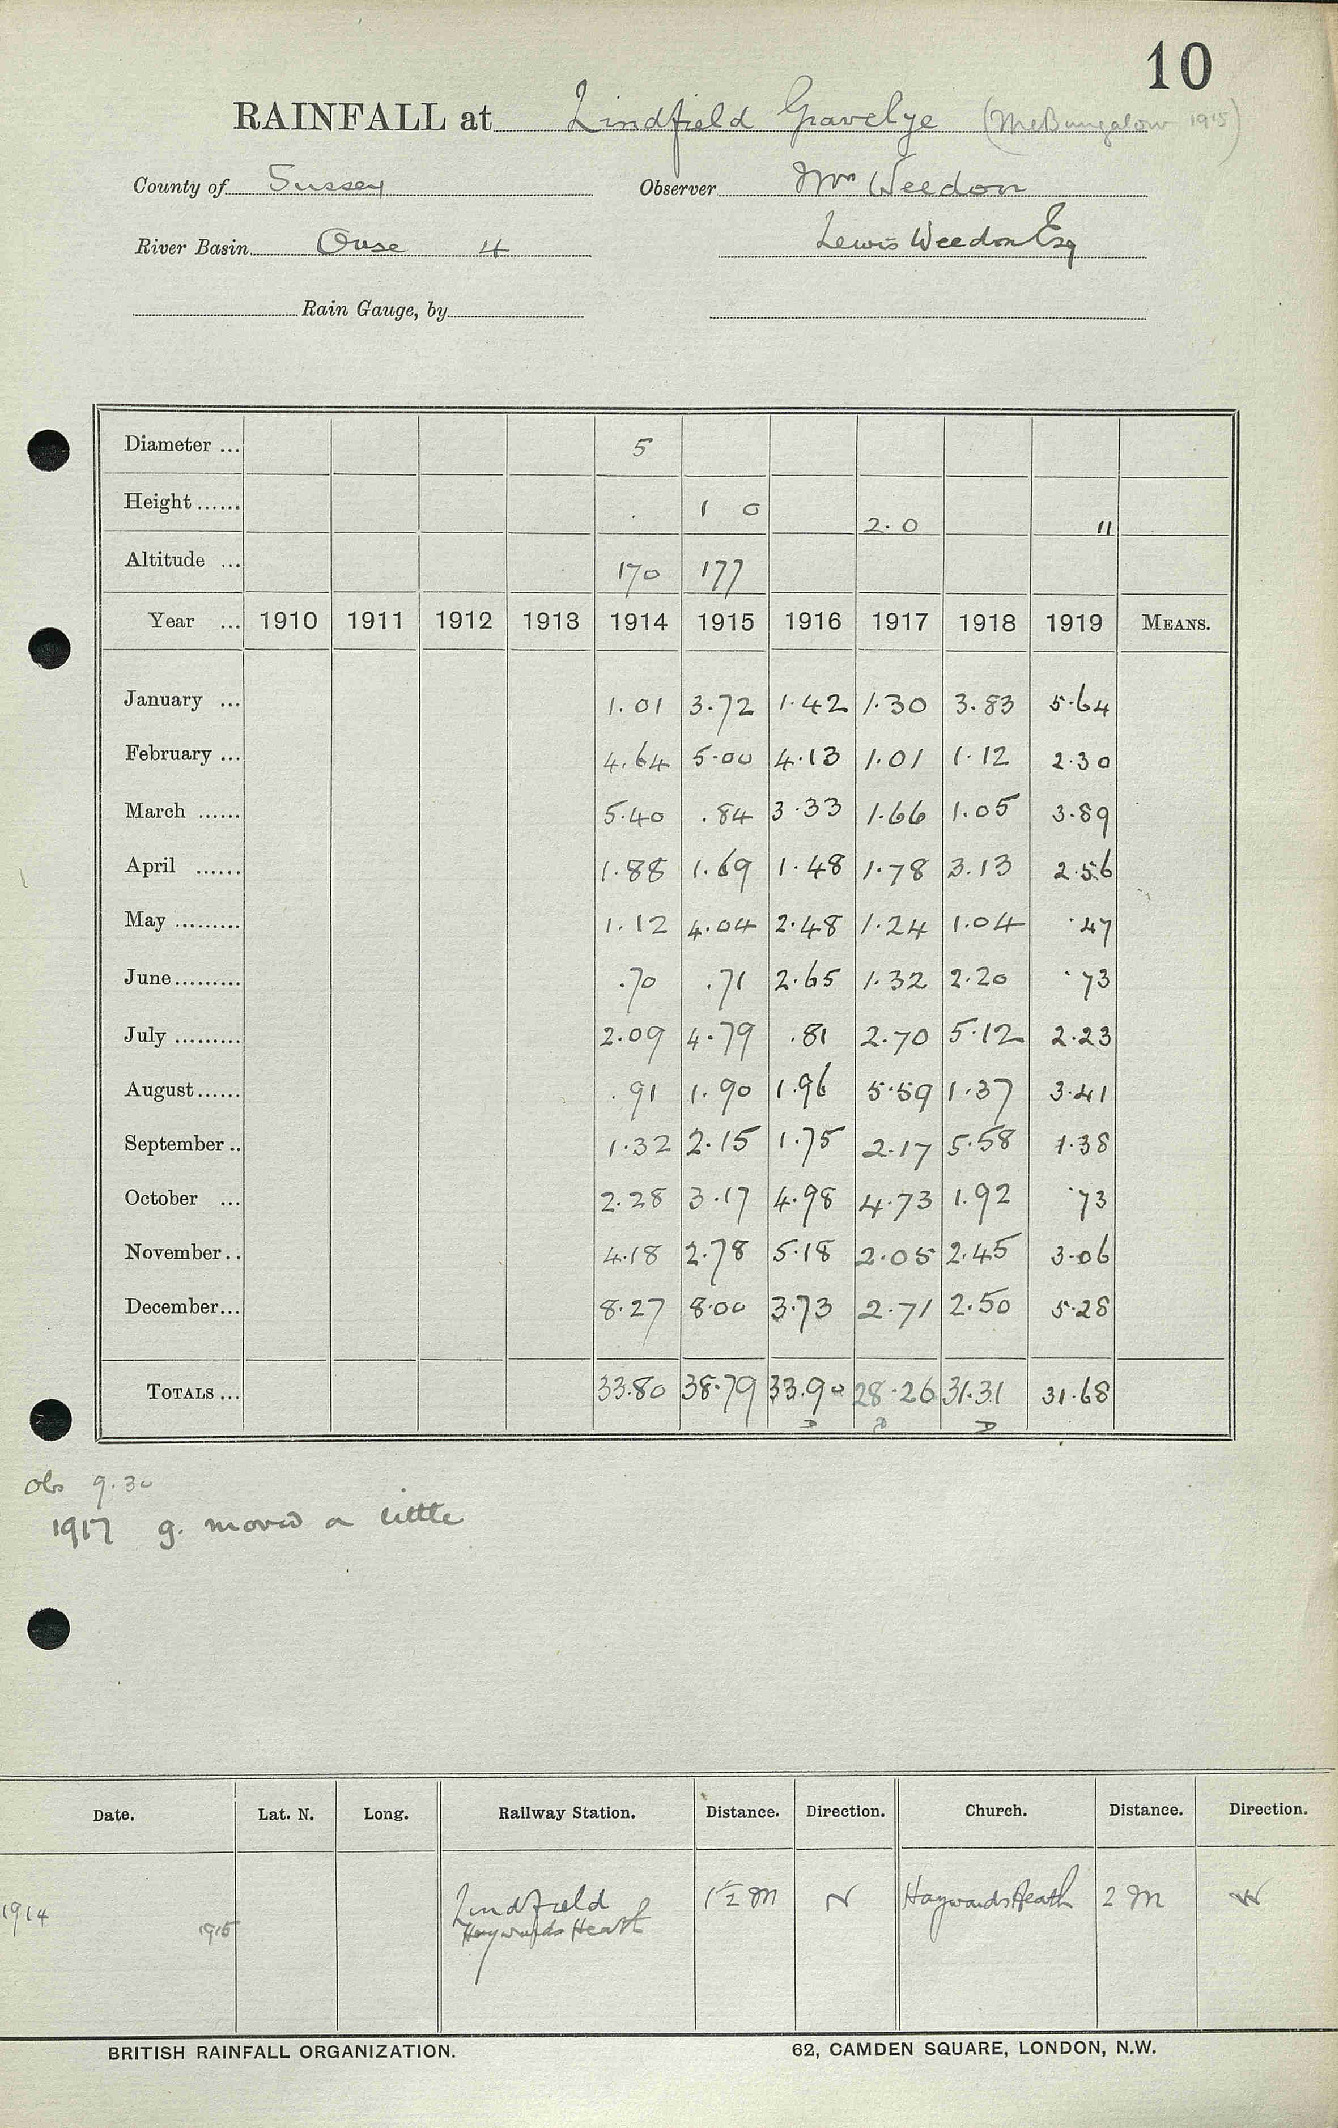 10
RAINFALL at Lindfield Gravelye (The Bungalow 1915)
County of Sussex Observer Mrs Weedon
River Basin Ouse 4 Lewis Weedon Esq
Rain Gauge, by
Diameter ... 5
Height ...... 1 0 2.0 11
Altitude ... 170 177
Year ... 1910 1911 1912 1913 1914 1915 1916 1917 1918 1919 MEANS.
January ... 1.01 3.72 1.42 1.30 3.83 5.64
February ... 4.64 5.00 4.13 1.01 1.12 2.30
March ...... 5.40 .84 3.33 1.66 1.05 3.89
April ...... 1.88 1.69 1.48 1.78 3.13 2.56
May ......... 1.12 4.04 2.48 1.24 1.04 .47
June......... .70 .71 2.65 1.32 2.20 .73
July ......... 2.09 4.79 .81 2.70 5.12 2.23
August...... .91 1.90 1.96 5.59 1.37 3.41
September .. 1.32 2.15 1.75 2.17 5.58 1.38
October ... 2.28 3.17 4.98 4.73 1.92 .73
November .. 4.18 2.78 5.18 2.05 2.45 3.06
December... 8.27 8.00 3.73 2.71 2.50 5.28
TOTALS ... 33.80 38.79 33.90 28.26 31.31 31.68
D D D
Obs 9.30
1917 g. moved a little
Date. Lat. N. Long. Railway Station. Distance. Direction. Church. Distance. Direction.
1914 Lindfield 1½ M N Haywards Heath 2 M W
1915 Haywards Heath
BRITISH RAINFALL ORGANIZATION. 62, CAMDEN SQUARE, LONDON, N.W.